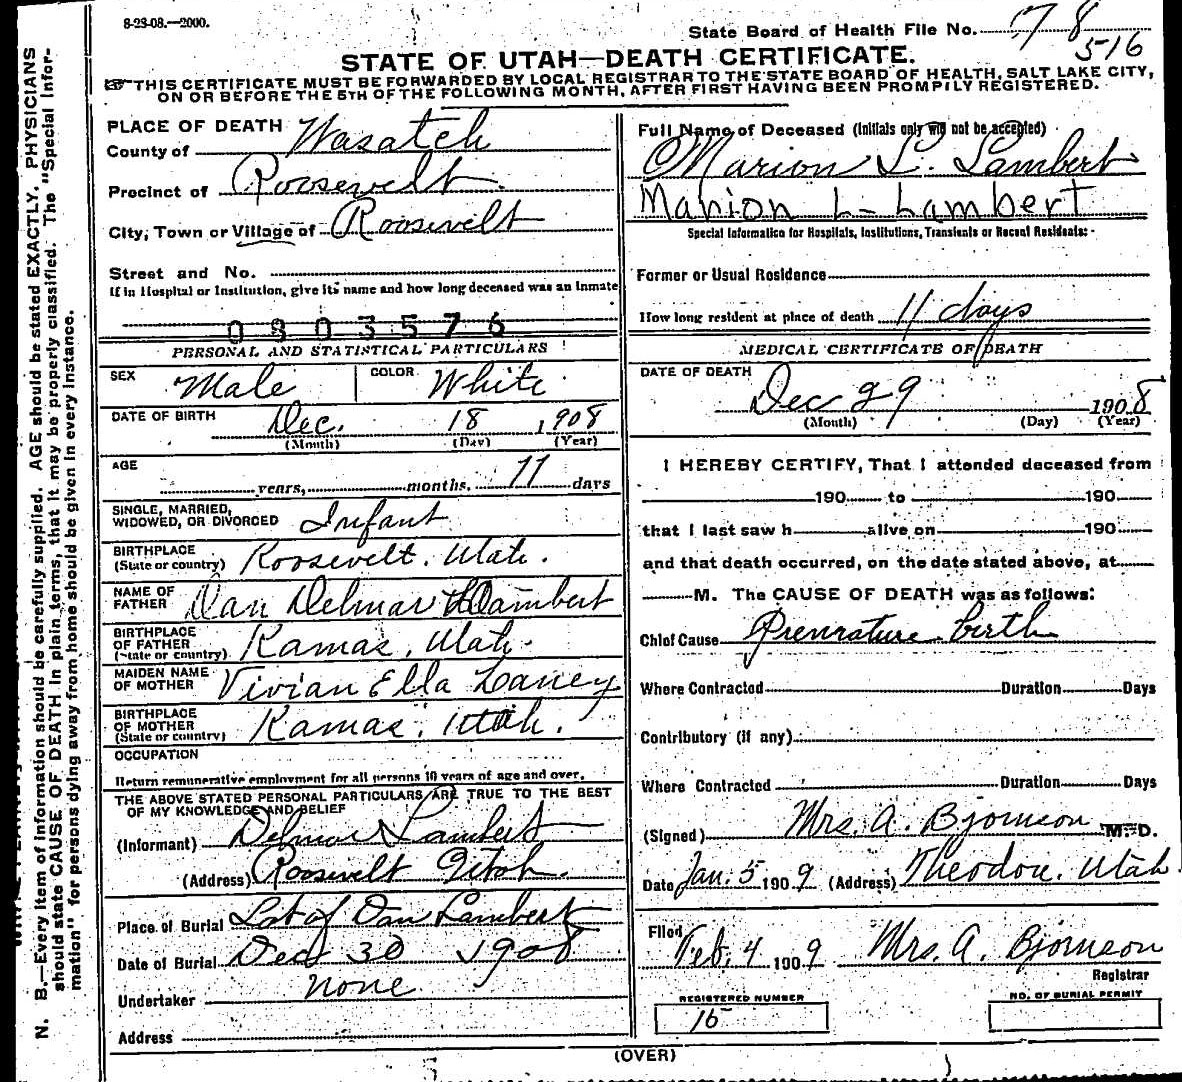 8-28-08.—2000.
State Board of Health File No. 78
516
STATE OF UTAH—DEATH CERTIFICATE.
THIS CERTIFICATE MUST BE FORWARDED BY LOCAL REGISTRAR TO THE STATE BOARD OF HEALTH, SALT LAKE CITY,
ON OR BEFORE THE 5TH OF THE FOLLOWING MONTH, AFTER FIRST HAVING BEEN PROMPILY REGISTERED.
PLACE OF DEATH
County of Wasatch
Precinct of Roosevelt
City, Town or Village of Roosevelt
Street and No.
If in Hospital or Institution, give its name and how long deceased was an inmate
0803576
PERSONAL AND STATISTICAL PARTICULARS
SEX Male COLOR White
DATE OF BIRTH Dec. 18 1908
(Month) (Day) (Year)
AGE
years, months, 11 days
SINGLE, MARRIED,
WIDOWED, OR DIVORCED Infant
BIRTHPLACE
(State or country) Roosevelt, Utah.
NAME OF
FATHER Dan Delmar Lambert
BIRTHPLACE
OF FATHER
(State or country) Kamas, Utah.
MAIDEN NAME
OF MOTHER Vivian Ella Laney
BIRTHPLACE
OF MOTHER
(State or country) Kamas, Utah.
OCCUPATION
Return remunerative employment for all persons 10 years of age and over.
THE ABOVE STATED PERSONAL PARTICULARS ARE TRUE TO THE BEST
OF MY KNOWLEDGE AND BELIEF
(Informant) Delmar Lambert
(Address) Roosevelt Utah.
Place of Burial Lot of Dan Lambert
Date of Burial Dec 30 1908
Undertaker none
Address
Full Name of Deceased (Initials only will not be accepted)
Marion L. Lambert
Marion L. Lambert
Special Information for Hospitals, Institutions, Transients or Recent Residents:
Former or Usual Residence
How long resident at place of death 11 days
MEDICAL CERTIFICATE OF DEATH
DATE OF DEATH
Dec 29 1908
(Month) (Day) (Year)
I HEREBY CERTIFY, That I attended deceased from
190 to 190
that I last saw h alive on 190
and that death occurred, on the date stated above, at
M. The CAUSE OF DEATH was as follows:
Chief Cause Premature birth
Where Contracted Duration Days
Contributory (if any)
Where Contracted Duration Days
(Signed) Mrs. A. Bjornson M.D.
Date Jan. 5 1909 (Address) Theodore, Utah
Filed Feb. 4 1909 Mrs. A. Bjornson
Registrar
REGISTERED NUMBER
15
NO. OF BURIAL PERMIT
(OVER)
N. B.—Every item of information should be carefully supplied. AGE should be stated EXACTLY. PHYSICIANS
should state CAUSE OF DEATH in plain terms, that it may be properly classified. The "Special Infor-
mation" for persons dying away from home should be given in every instance.